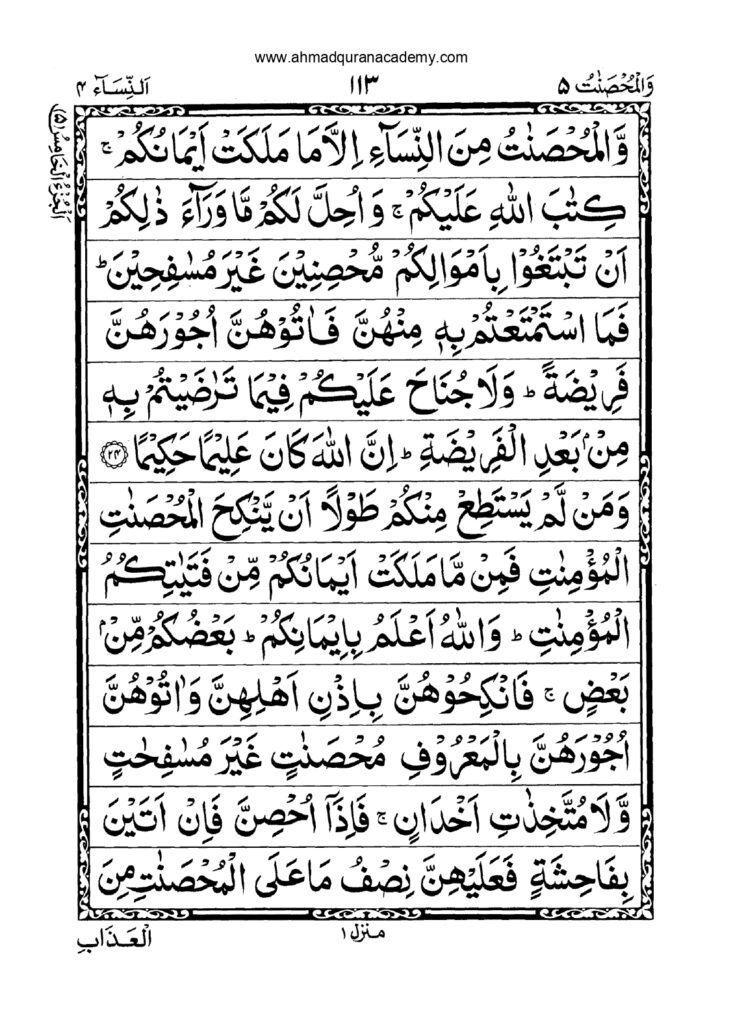 www.ahmadquranacademy.com
وَالْمُحْصَنٰتُ ۵
۱۱۳
اَلنِّسَآء ۴
اَلْجُزْءُ الْخَامِسُ (۵)
وَّالْمُحْصَنٰتُ مِنَ النِّسَآءِ اِلَّا مَا مَلَكَتْ اَيْمَانُكُمْ ۚ
كِتٰبَ اللّٰهِ عَلَيْكُمْ ۚ وَ اُحِلَّ لَكُمْ مَّا وَرَآءَ ذٰلِكُمْ
اَنْ تَبْتَغُوْا بِاَمْوَالِكُمْ مُّحْصِنِيْنَ غَيْرَ مُسٰفِحِيْنَ ؕ
فَمَا اسْتَمْتَعْتُمْ بِهٖ مِنْهُنَّ فَاٰتُوْهُنَّ اُجُوْرَهُنَّ
فَرِيْضَةً ؕ وَلَا جُنَاحَ عَلَيْكُمْ فِيْمَا تَرٰضَيْتُمْ بِهٖ
مِنْۢ بَعْدِ الْفَرِيْضَةِ ؕ اِنَّ اللّٰهَ كَانَ عَلِيْمًا حَكِيْمًا ﴿۲۴﴾
وَمَنْ لَّمْ يَسْتَطِعْ مِنْكُمْ طَوْلًا اَنْ يَّنْكِحَ الْمُحْصَنٰتِ
الْمُؤْمِنٰتِ فَمِنْ مَّا مَلَكَتْ اَيْمَانُكُمْ مِّنْ فَتَيٰتِكُمُ
الْمُؤْمِنٰتِ ؕ وَاللّٰهُ اَعْلَمُ بِاِيْمَانِكُمْ ؕ بَعْضُكُمْ مِّنْۢ
بَعْضٍ ۚ فَانْكِحُوْهُنَّ بِاِذْنِ اَهْلِهِنَّ وَاٰتُوْهُنَّ
اُجُوْرَهُنَّ بِالْمَعْرُوْفِ مُحْصَنٰتٍ غَيْرَ مُسٰفِحٰتٍ
وَّلَا مُتَّخِذٰتِ اَخْدَانٍ ۚ فَاِذَاۤ اُحْصِنَّ فَاِنْ اَتَيْنَ
بِفَاحِشَةٍ فَعَلَيْهِنَّ نِصْفُ مَا عَلَى الْمُحْصَنٰتِ مِنَ
منزل ۱
الْعَذَابِ